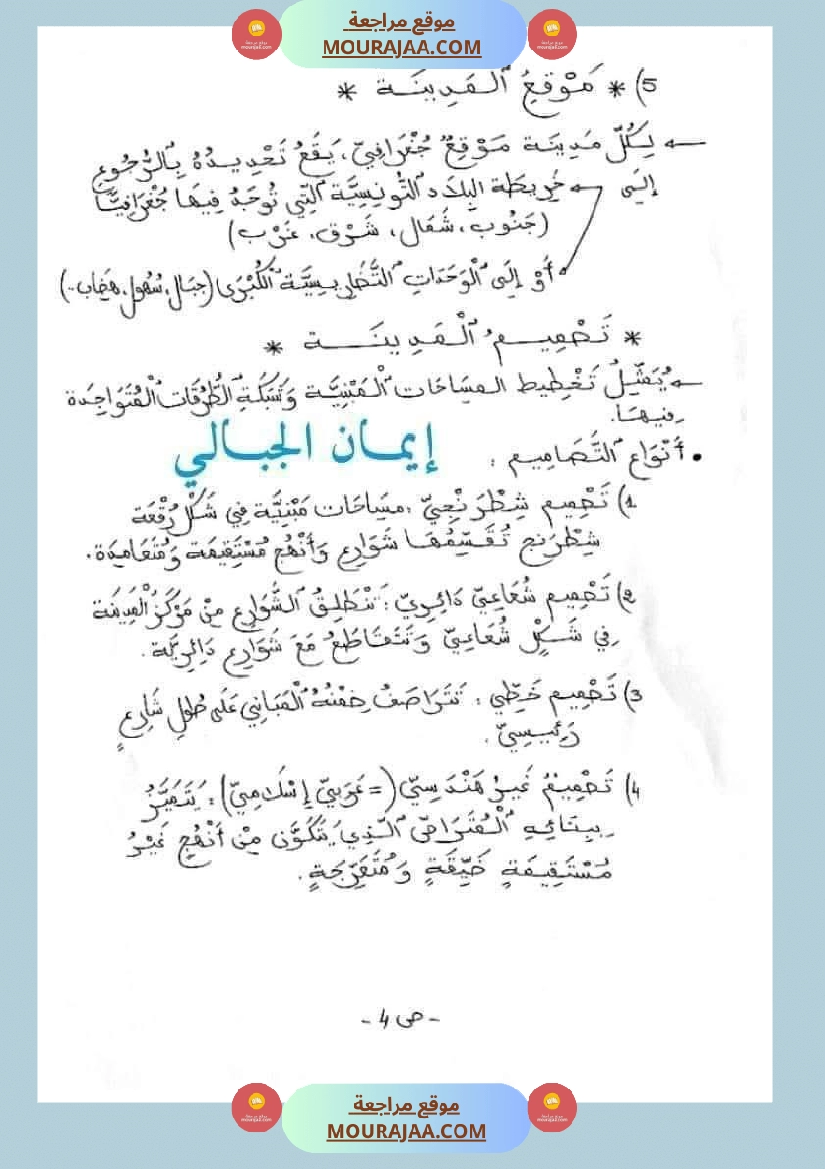 موقع مراجعة
MOURAJAA.COM
5) * مَوْقِعُ الْمَدِينَة *
← لِكُلِّ مَدِينَة مَوْقِعٌ جُغْرَافِيّ، يَقَعُ تَحْدِيدُهُ بِالرُّجُوعِ
إلَى ← خَرِيطَة البِلَاد التُّونِسِيَّة الَّتِي تُوجَدُ فِيهَا جُغْرَافِيًّا
(جَنُوب، شَمَال، شَرْق، غَرْب)
أَوْ إِلَى الْوَحَدَاتِ التَّضَارِيسِيَّة الْكُبْرَى (جِبَال، سُهُول، هِضَاب..)
* تَصْمِيمُ الْمَدِينَة *
← يُمَثِّلُ تَخْطِيط المِسَاحَات الْمَبْنِيَّة وَشَبَكَةِ الطُّرُقَات الْمُتَوَاجِدَة
فِيهَا.
• أَنْوَاع التَّصَامِيم :
إيمان الجبالي
1) تَصْمِيم شِطْرَنْجِيّ : مِسَاحَات مَبْنِيَّة فِي شَكْل رُقْعَة
شِطْرَنج تُقَسِّمُهَا شَوَارِع وَأَنْهُج مُسْتَقِيمَة وَمُتَعَامِدَة.
2) تَصْمِيم شُعَاعِيّ دَائِرِيّ : تَنْطَلِقُ الشَّوَارِع مِنْ مَرْكَز الْمَدِينَة
فِي شَكْلٍ شُعَاعِيّ وَتَتَقَاطَعُ مَعَ شَوَارِع دَائِرِيَّة.
3) تَصْمِيم خَطِّي : تَتَرَاصَفُ ضِمْنَهُ الْمَبَانِي عَلَى طُولِ شَارِعٍ
رَئِيسِيّ.
4) تَصْمِيمٌ غَيْرُ هَنْدَسِيّ (= عَرَبِيّ إِسْلَامِيّ) : يَتَمَيَّزُ
بِبِنَائِهِ الْمُتَرَاصِّ الَّذِي يَتَكَوَّن مِنْ أَنْهُجٍ غَيْرُ
مُسْتَقِيمَةٍ ضَيِّقَةٍ وَمُتَعَرِّجَةٍ.
- ص 4 -
موقع مراجعة
MOURAJAA.COM